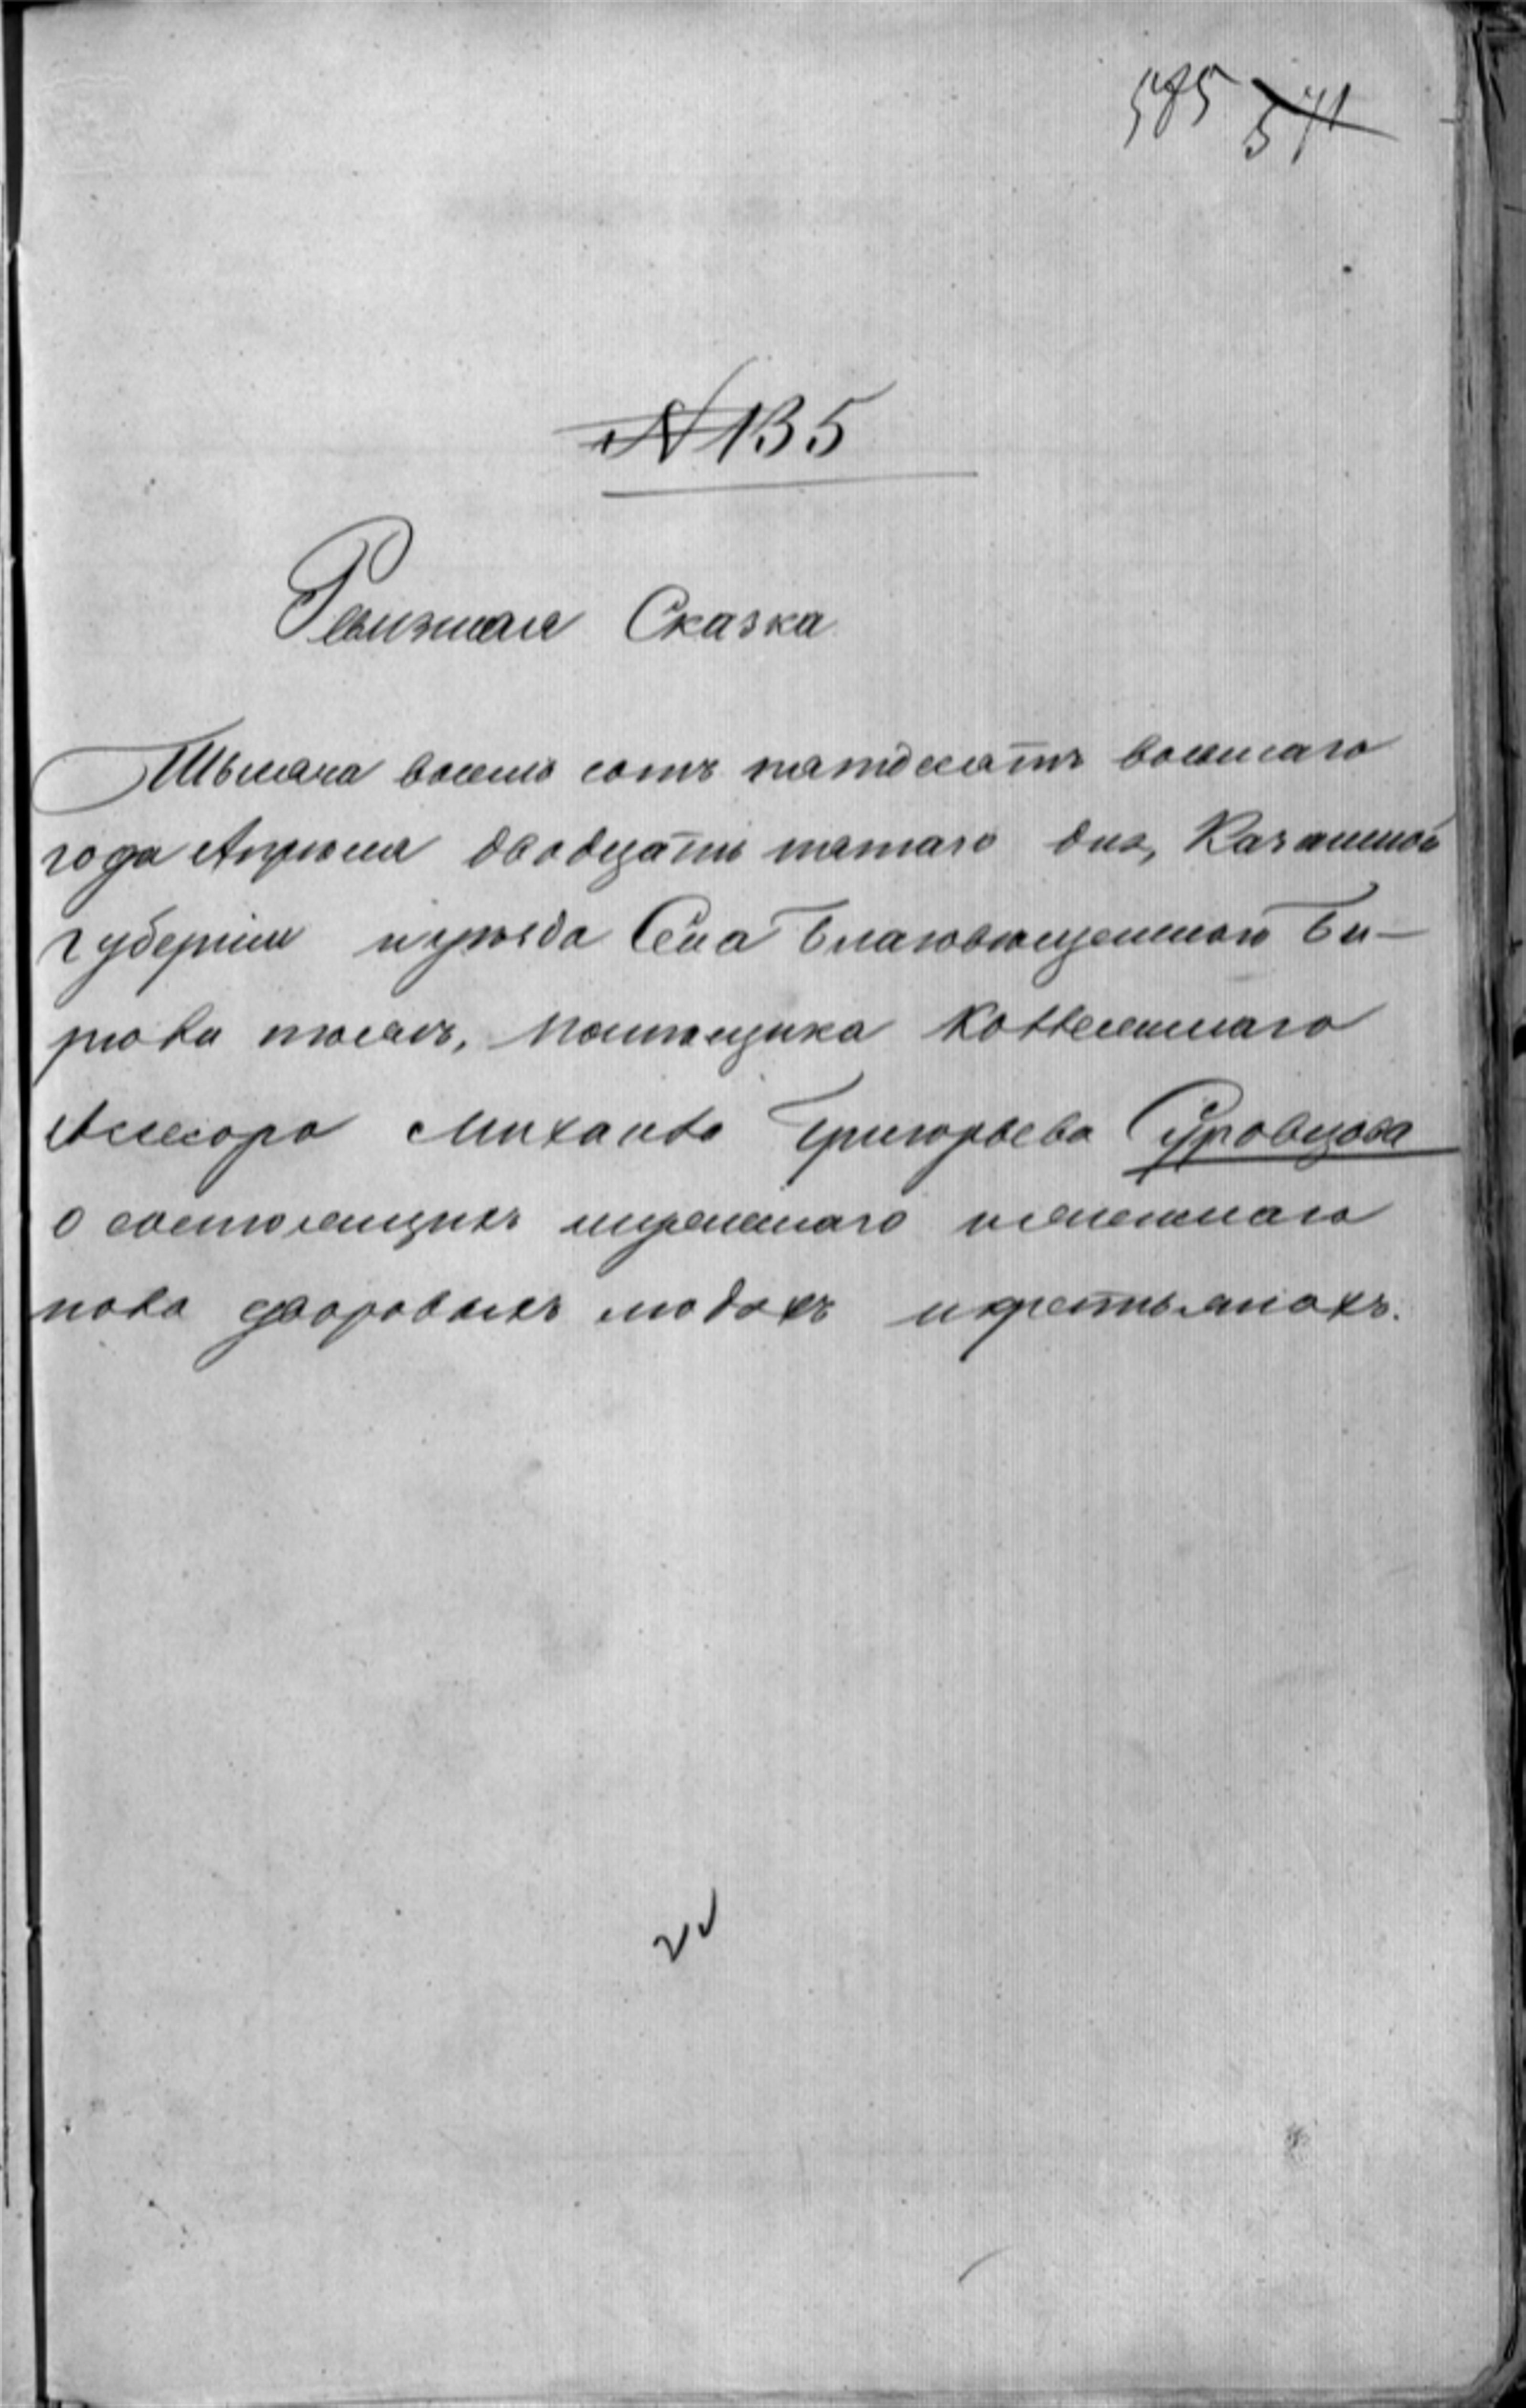 585 571
№ 135
Ревизская Сказка
Тысяча восемь сотъ пятьдесятъ восьмаго
года Апрѣля двадцать пятаго дня, Казанской
губерніи и уѣзда Села Благовѣщенскаго Би-
рюли тожъ, Помѣщика Коллежскаго
Асесора Михаила Григорьева Суровцова
о состоящихъ мужескаго и женскаго
пола дворовыхъ людяхъ и крестьянахъ.